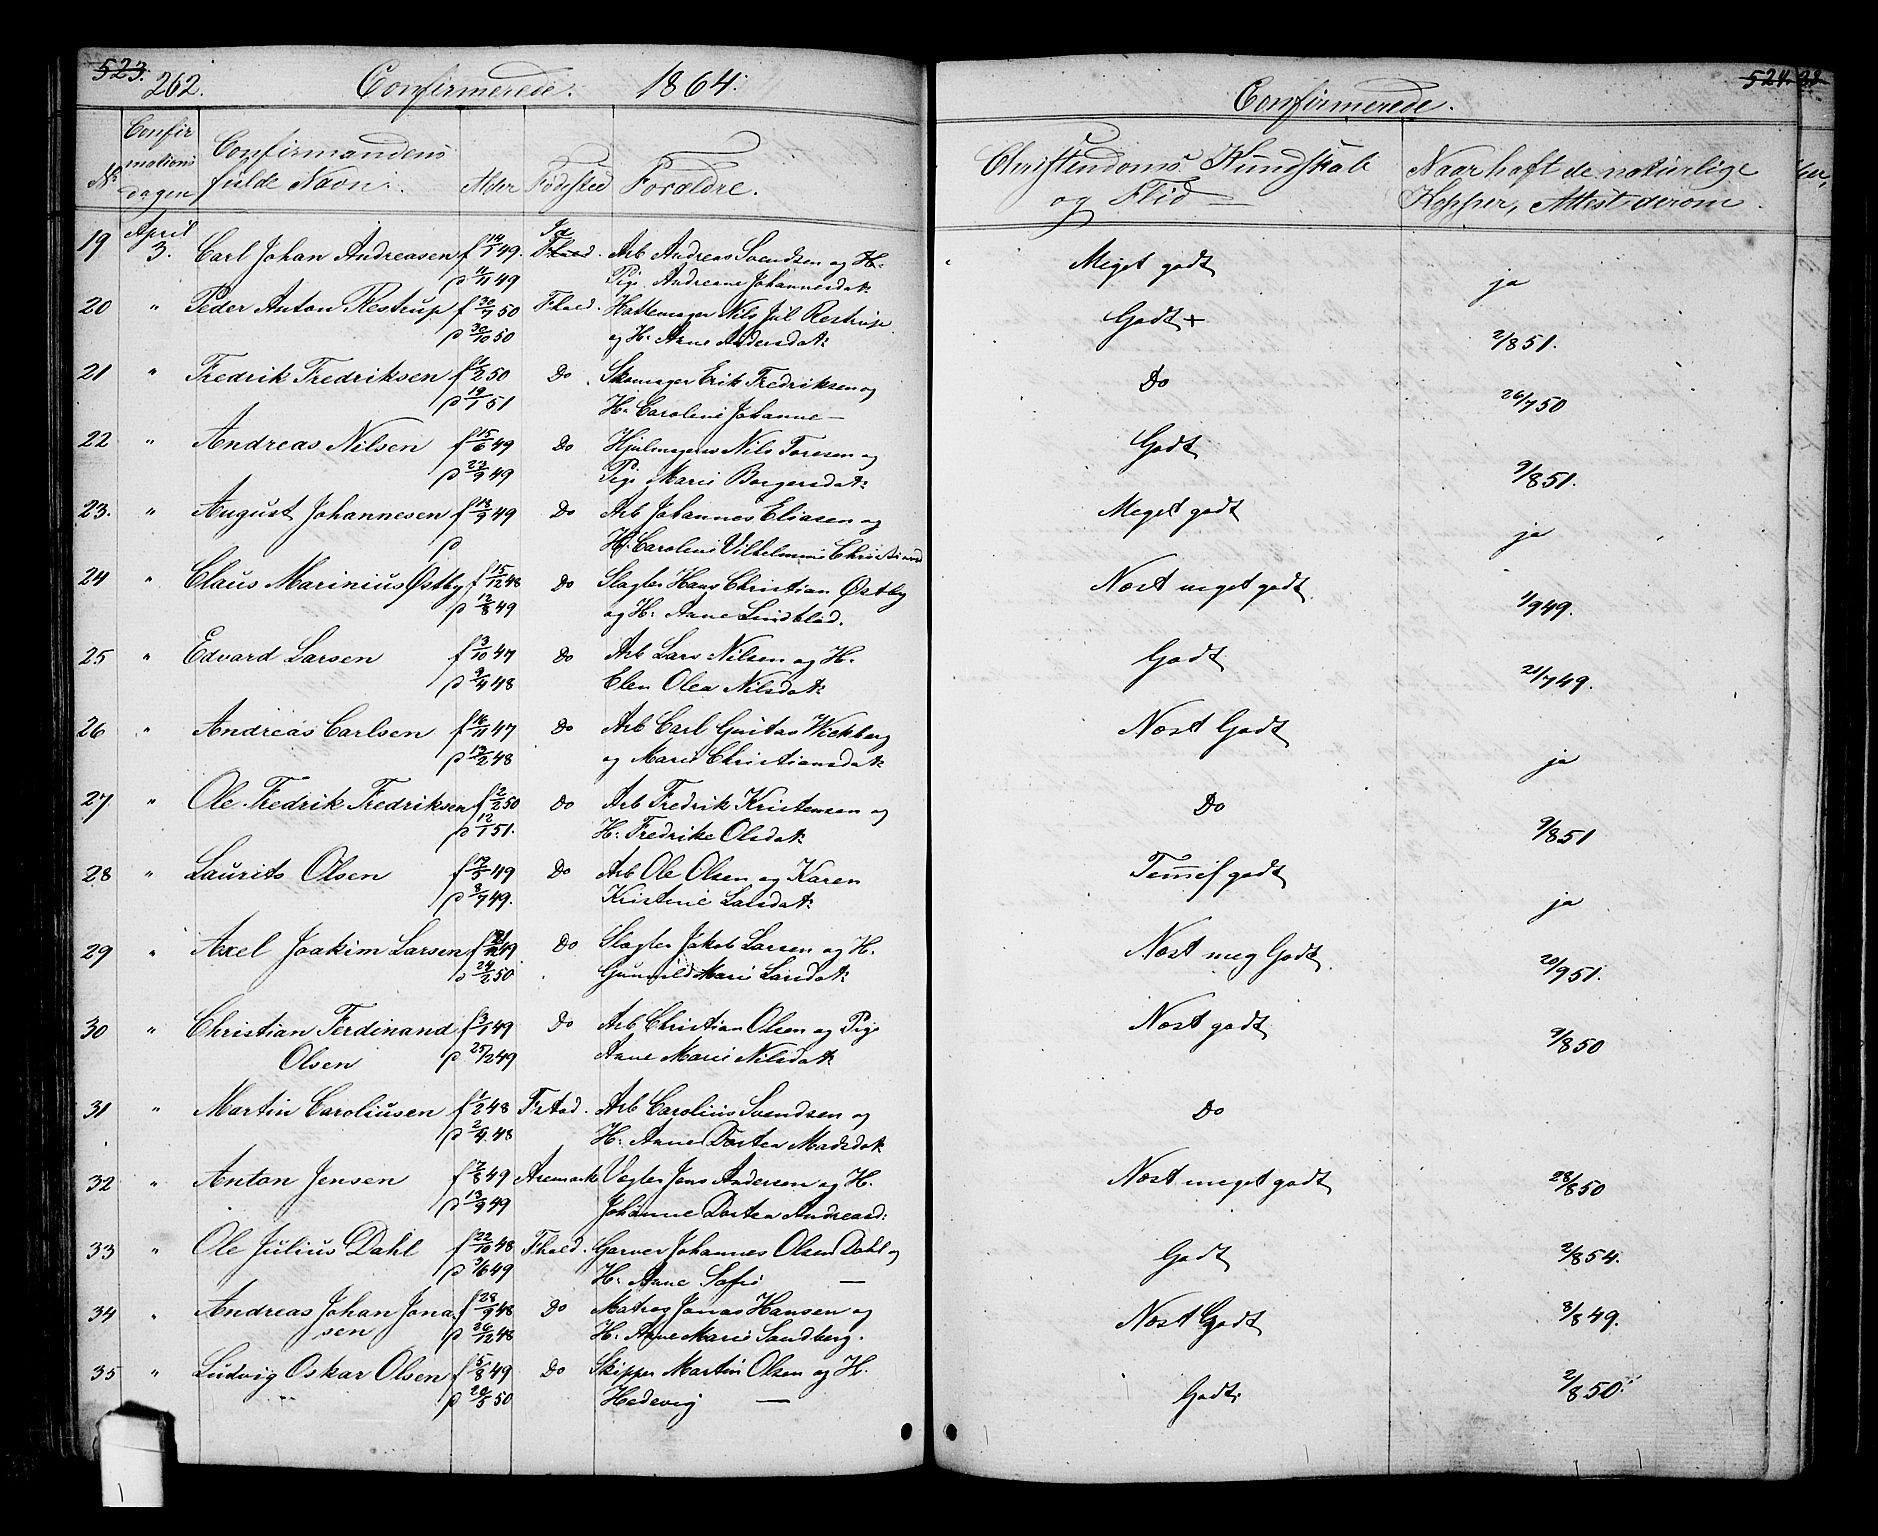 523.
262. Confirmerede. 1864.
No Confirmationsdagen Confirmandens fulde Navn. Alder Fødested Forældre.
19 April 3. Carl Johan Andreasen f 49. Fhald. Arb Andreas Svendsen og
p 11/11 49 Pige Andreane Johannesdat:
20 " Peder Anton Restrup f 30/7 50 Fhald. Hattemager Nils Jul Restrup
p 20/10 50 og H: Anne Andersdat:
21 " Fredrik Fredriksen f 50 Do Skomager Erik Fredriksen og
p 19/1 51 H: Caroline Johanne —
22 " Andreas Nilsen f 15/6 49 Do Hjulmager Nils Toresen og
p 23/9 49 Pige Marie Borgersdat:
23. " August Johannesen f 18/9 49 Do Arb Johannes Eliasen og
p H: Caroline Vilhelmine
24 " Claus Marinius Østby f 15/12 48 Do Slagter Hans Christian Østby
p 12/8 49 og H: Anne Lindblad.
25 " Edvard Larsen f 3/10 47 Do Arb Lars Nilsen og H.
p 9/4 48 Elen Olea Nilsdat:
26 " Andreas Carlsen f 16/11 47 Do Arb Carl Gustav Wickberg
p 13/2 48 og Marie Christiansdat:
27 " Ole Fredrik Fredriksen f 2/2 50 Do Arb Fredrik Kristensen og
p 12/1 51. H: Fredrike Olsdat:
28 " Laurits Olsen f 49 Do Arb Ole Olsen og Karen
p 8/7 49. Kristine Larsdat:
29 " Axel Joakim Larsen f 49 Do Slagter Jakob Larsen og H.
p 24/2 50 Gunnild Marie Larsdat:
30 " Christian Ferdinand f 3/1 49 Do Arb Christian Olsen og Pige
Olsen p 25/2 49 Anne Marie Nilsdat:
31 " Martin Caroliusen f 1/2 48 Frstad. Arb Carolius Svendsen og
p 2/4 48 H: Anne Dortea Madsdat
32 " Anton Jensen f 2/8 49 Aremark Jens Andersen og H.
p 13/9 49 Johanne Dortea Andreasd:
33 " Ole Julius Dahl f 22/10 48 Fhald. Garver Johannes Olsen Dahl og
p 3/6 49 H: Anne Sofie —
34 " Andreas Johan Jona- f 28/9 48 Do Matros Jonas Hansen og
sen p 26/12 48 H: Anne Marie Sandberg.
35 " Ludvig Oskar Olsen f 15/8 49 Do Skipper Martin Olsen og H.
p 20/5 50 Hedevig —
524.
Confirmerede.
Christendoms Kundskab og Flid — Naar haft de naturlige Kopper, Attest derom.
Meget godt ja
Godt + 2/8 51.
Do 26/7 50
Godt 9/8 51.
Meget godt ja
Næst meget godt 1/9 49.
Godt 21/7 49.
Næst Godt ja
Do 9/8 51
Temmel godt ja
Næst meg Godt 20/9 51.
Næst godt 9/8 50
Do
Næst meget godt 28/8 50
Godt 2/8 54.
Næst Godt 8/8 49.
Godt 2/8 50.